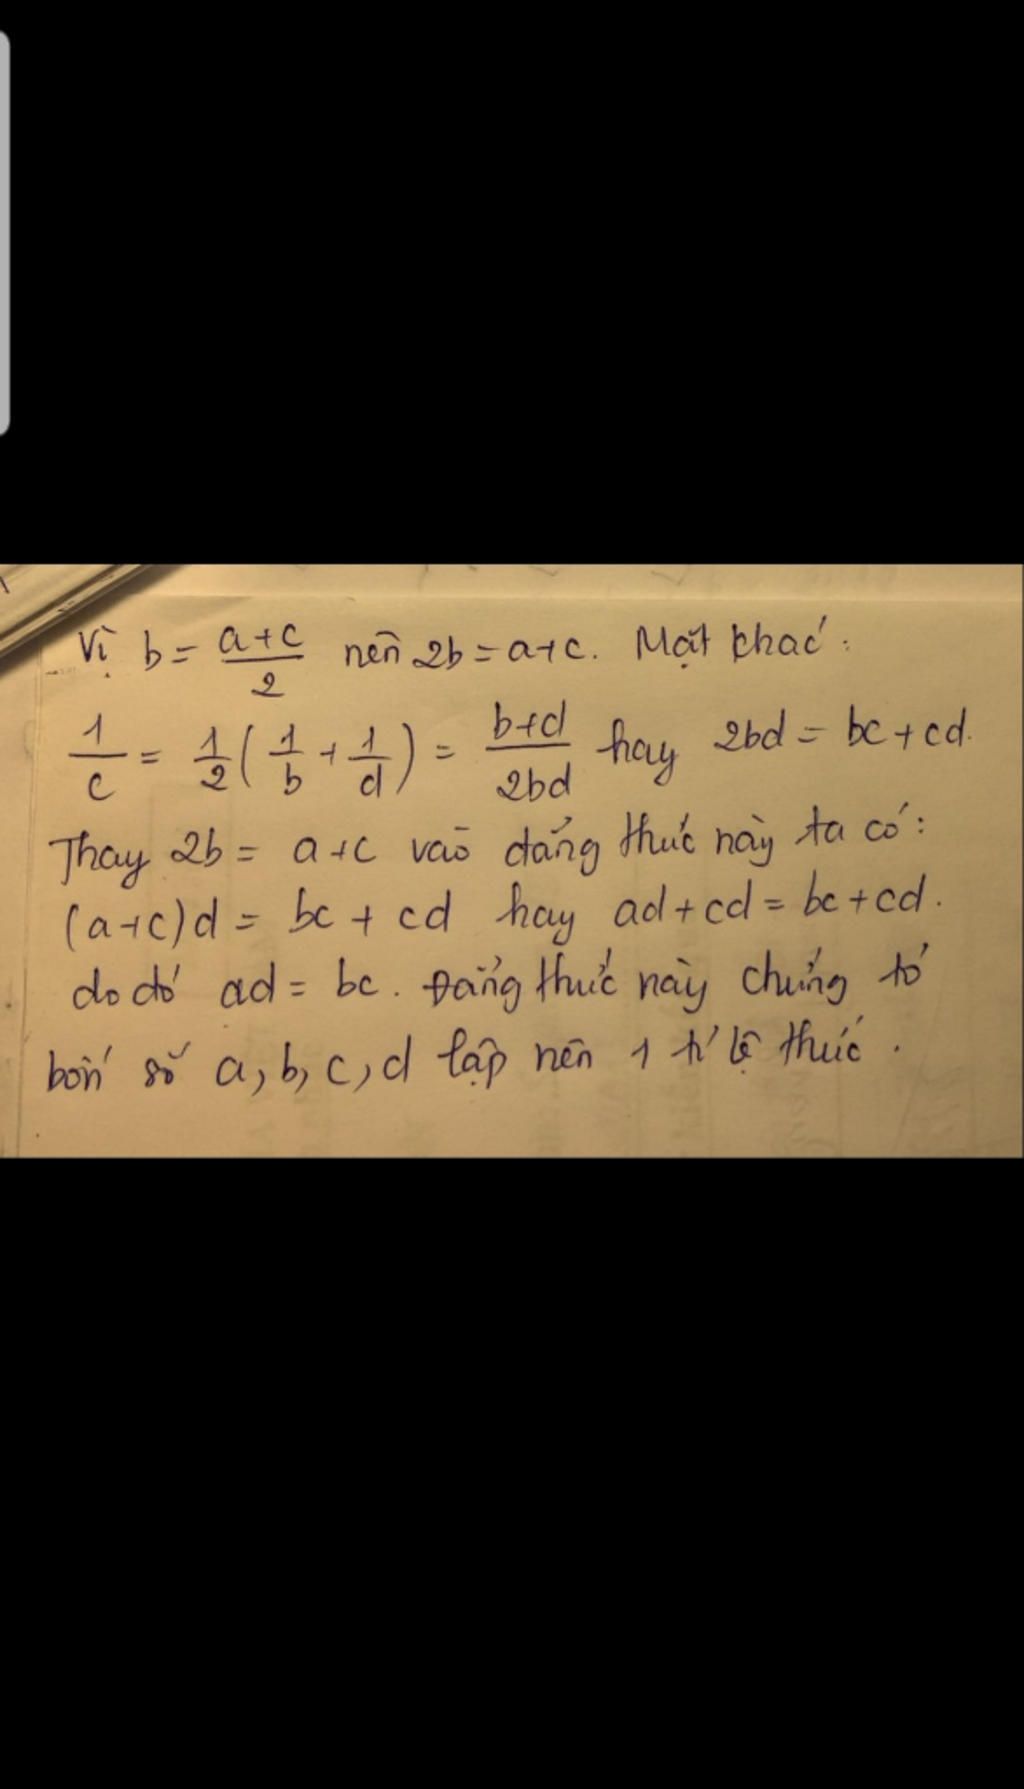 Vì b = a+c/2 nên 2b = a+c. Mặt khác:
1/c = 1/2 (1/b + 1/d) = b+d/2bd hay 2bd = bc + cd.
Thay 2b = a+c vào đẳng thức này ta có:
(a+c)d = bc + cd hay ad + cd = bc + cd.
do đó ad = bc. Đẳng thức này chứng tỏ
bốn số a, b, c, d lập nên 1 tỉ lệ thức.